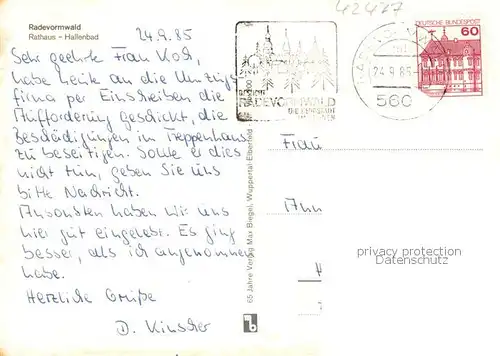 42477
Radevormwald
Rathaus - Hallenbad
24.9.85
Sehr geehrte Frau Koch,
habe heute an die Umzugs
firma per Einschreiben die
Aufforderung geschickt, die
Beschädigungen im Treppenhaus
zu beseitigen. Sollte er dies
nicht tun, geben Sie uns
bitte Nachricht.
Ansonsten haben wir uns
hier gut eingelebt. Es ging
besser, als ich angenommen
habe.
Herzliche Grüße
D. Kinscher
65 Jahre Verlag Max Biegel, Wuppertal-Elberfeld
RADEVORMWALD
24.9.85
560
DEUTSCHE BUNDESPOST
60
Frau
Ann
privacy protection
Datenschutz